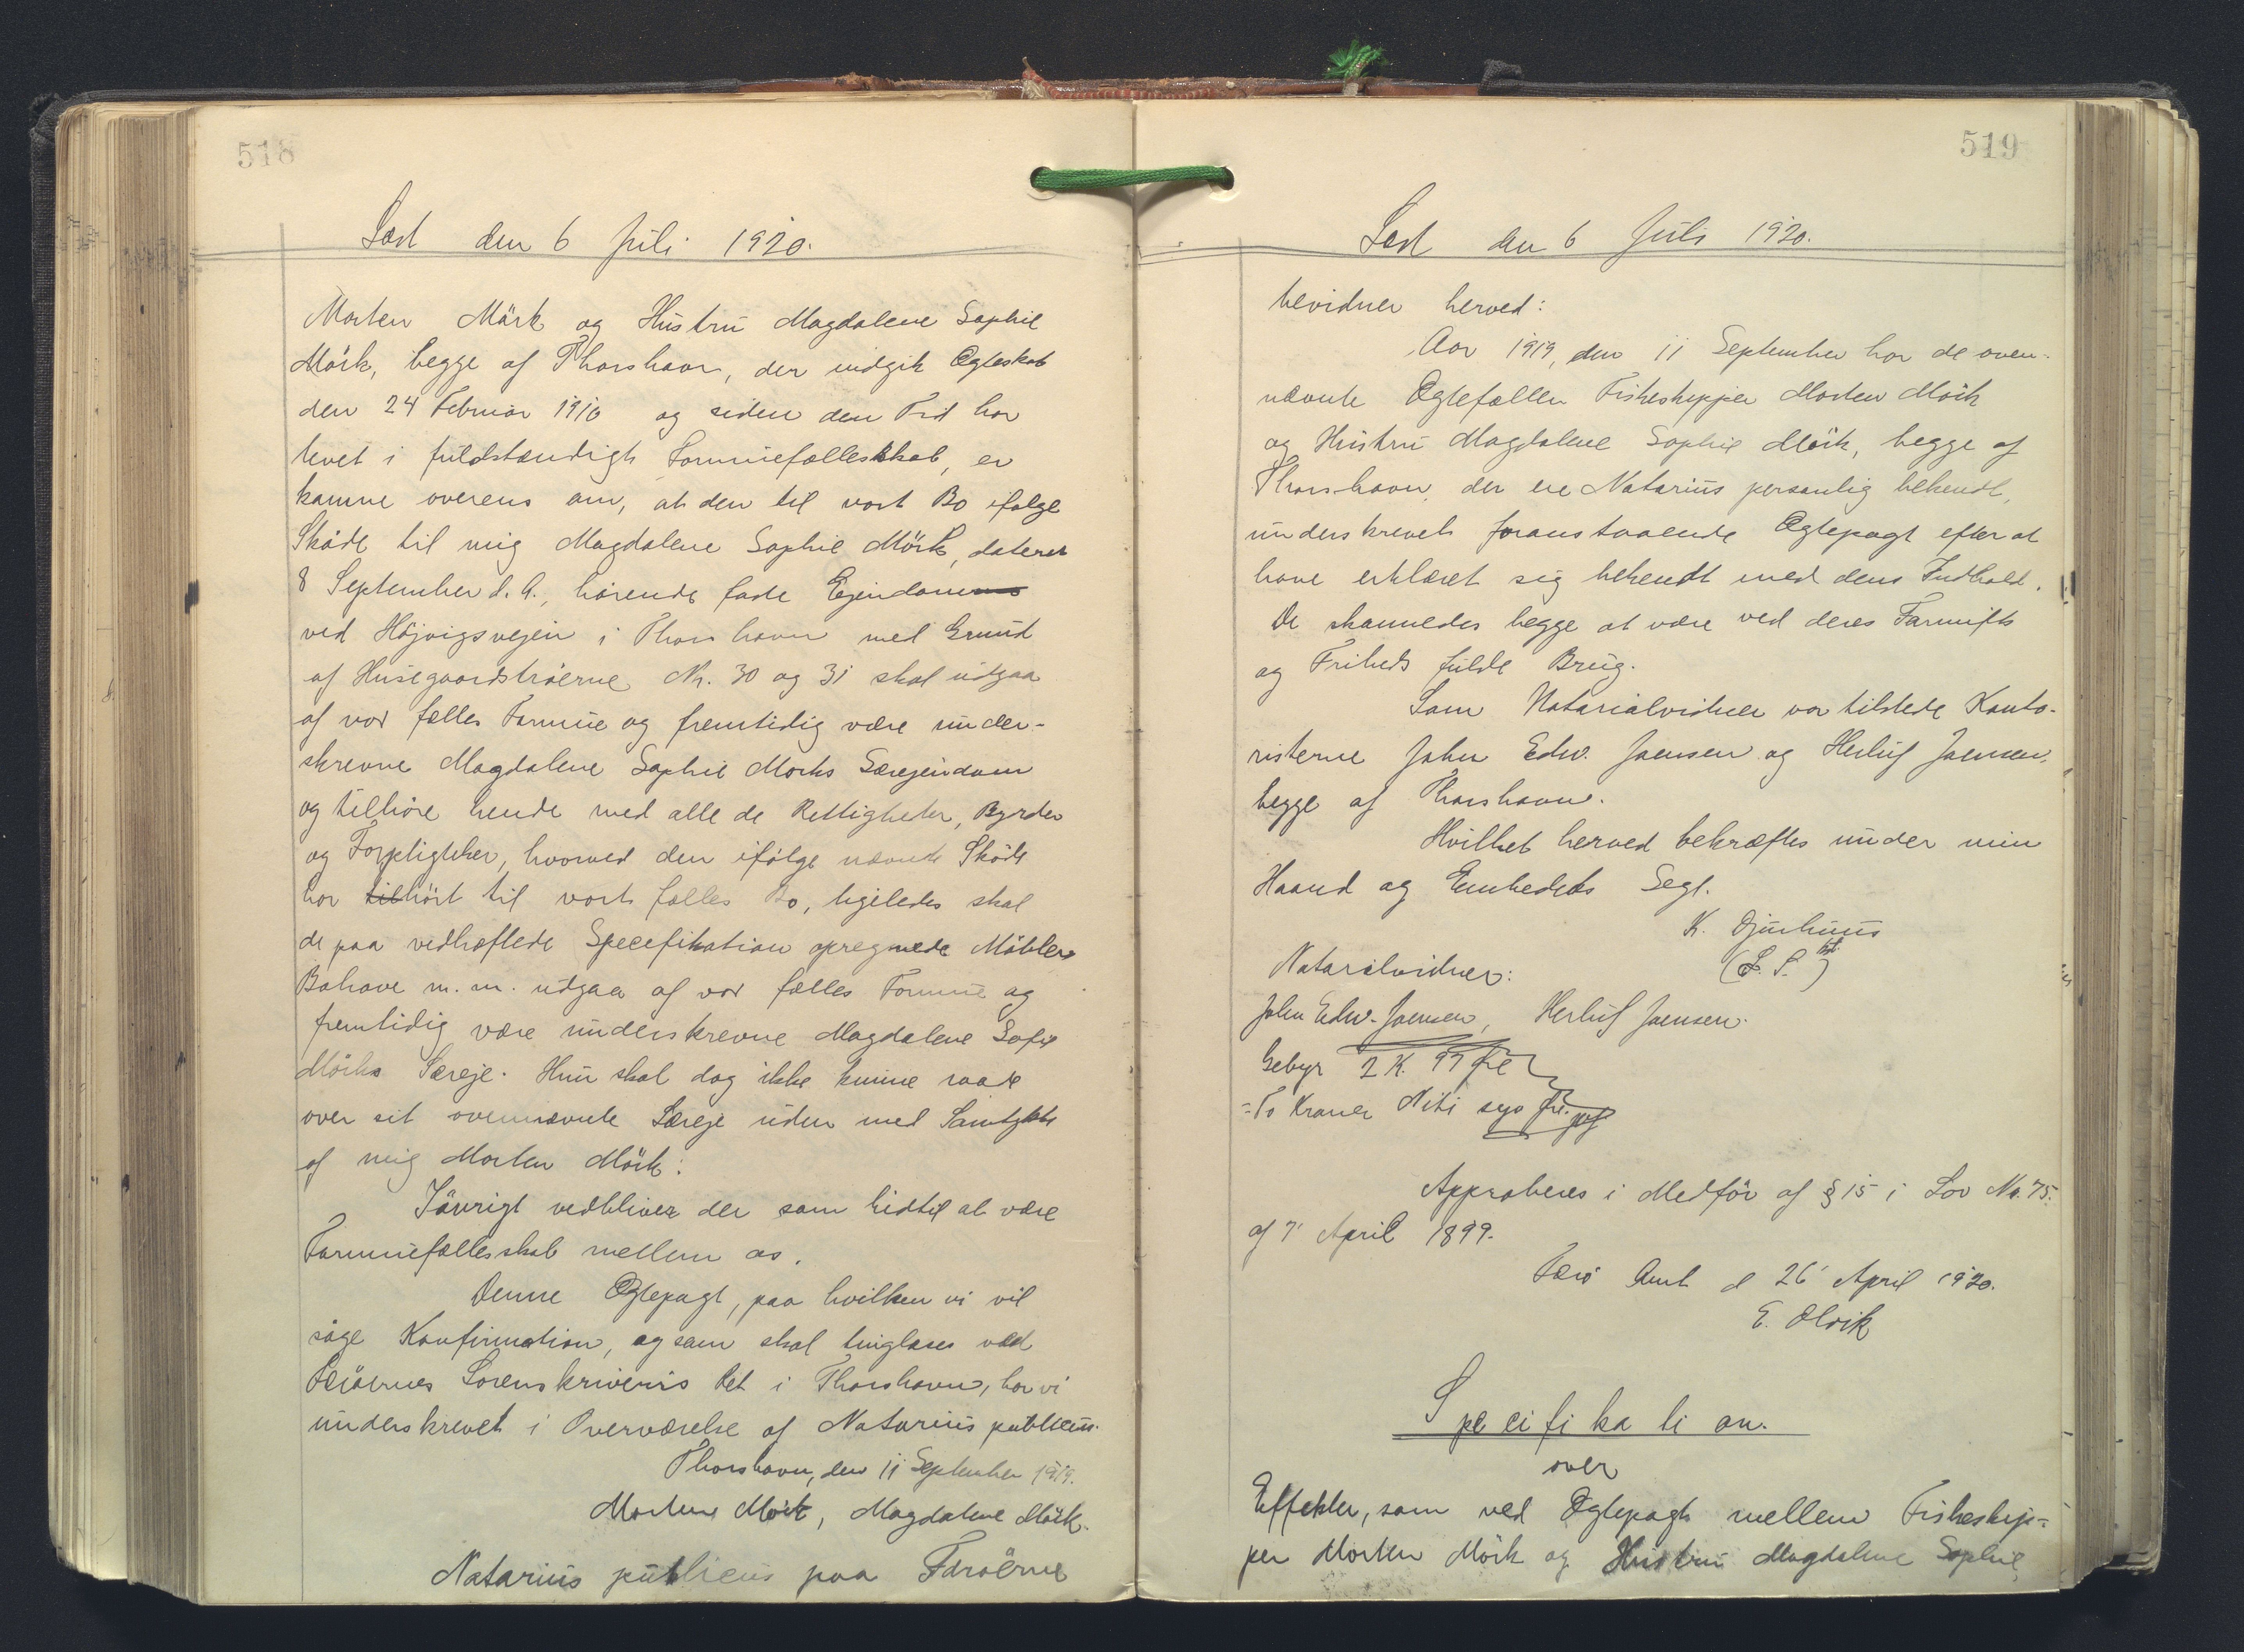 518
Læst den 6 Juli 1920.
Morten Mörk og Hustru Magdalene Sophie
Mörk, begge af Thorshavn, der indgik Ægteskab
den 24 Februar 1910 og siden den Tid har
levet i fuldstændigt Formuefællesskab, er
komne overens om, at den til vort Bo ifølge
Skøde til mig Magdalene Sophie Mörk, dateret
8 September d. A., hørende faste Ejendom
ved Höjvigsvejen i Thorshavn med Grund
af Husegaardströerne Nr. 30 og 31 skal udgaa
af vor fælles Formue og fremtidig være under-
skrevne Magdalene Sophie Mörks Særejendom
og tilhöre hende med alle de Rettigheder, Byrder
og Forpligtelser, hvorved den ifølge nævnte Sköde
har tilhört til vort fælles Bo, ligeledes skal
de paa vedhæftede Specefikation opregnede Möbler
Bohave m. m. udgaa af vor fælles Formue og
fremtidig være underskrevne Magdalene Sofie
Mörks Særeje. Hun skal dog ikke kunne raade
over sit ovennævnte Særeje uden med Samtykke
af mig Morten Mörk.
Iövrigt vedbliver der som hidtil at være
Formuefællesskab mellem os.
Denne Ægtepagt, paa hvilken vi vil
söge Konfirmation, og som skal tinglæses ved
Færöernes Sorenskriveris Ret i Thorshavn, har vi
underskrevet i Overværelse af Notarius publicus.
Thorshavn, den 11 September 1919.
Morten Mörk, Magdalene Mörk.
Notarius publicus paa Færöerne
519
Læst den 6 Juli 1920.
bevidner herved:
Aar 1919, den 11 September har de oven-
nævnte Ægtefæller Fiskeskipper Morten Mörk
og Hustru Magdalene Sophie Mörk, begge af
Thorshavn, der ere Notarius personlig bekendt,
underskrevet foranstaaende Ægtepagt efter at
have erklæret sig bekendt med dens Indhold.
De skønnedes begge at være ved deres Fornufts
og Friheds fulde Brug.
Som Notarialvidner var tilstede Konto-
risterne John Edw. Joensen og Herluf Joensen,
begge af Thorshavn.
Hvilket herved bekræftes under min
Haand og Embedets Segl.
K. Djurhuus
(L. S.) kst.
Notarialvidner:
John Edw. Joensen, Herluf Joensen.
Gebyr 2 K. 97 Øre
= To Kroner Niti syv Øre.
Approberes i Medför af § 15 i Lov No. 75.
af 7' April 1899.
Færö Amt d 26' April 1920.
E. Olrik
Specifikation.
over
Effekter, som ved Ægtepagt mellem Fiskeskip=
per Morten Mörk og Hustru Magdalene Sophie